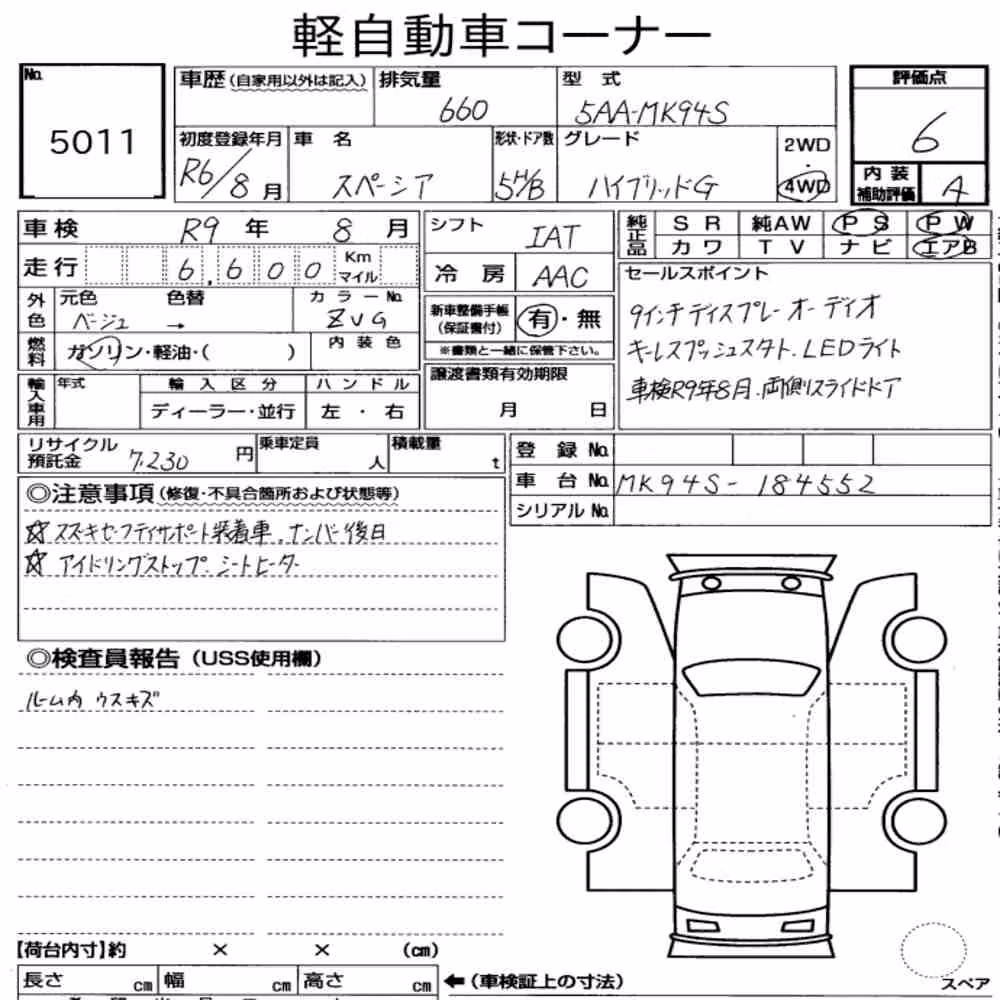 軽自動車コーナー
No. 5011
車歴(自家用以外は記入) 排気量 660 型式 5AA-MK94S
評価点 6
初度登録年月 R6/8月 車名 スペーシア 形状・ドア数 5H/B グレード ハイブリッドG 2WD・4WD
内装補助評価 A
車検 R9年 8月
走行 6,600 Km マイル
外色 元色 ベージュ 色替 → カラーNo. ZVG
燃料 ガソリン・軽油・( ) 内装色
輸入車用 年式 輸入区分 ハンドル
ディーラー・並行 左・右
シフト IAT
冷房 AAC
新車整備手帳(保証書付) 有・無
※書類と一緒に保管下さい。
譲渡書類有効期限
月 日
純正品 SR 純AW PS PW
カワ TV ナビ エアB
セールスポイント
9インチディスプレーオーディオ
キーレスプッシュスタト.LEDライト
車検R9年8月.両側スライドドア
リサイクル預託金 7,230円 乗車定員 人 積載量 t
登録No.
車台No. MK94S-184552
シリアルNo.
◎注意事項(修復・不具合箇所および状態等)
☆スズキセーフティサポート装着車.ナンバー後日
☆アイドリングストップ.シートヒーター
◎検査員報告(USS使用欄)
ルーム内 ウスキズ
【荷台内寸】約 × × (cm)
長さ cm 幅 cm 高さ cm ←(車検証上の寸法)
スペア